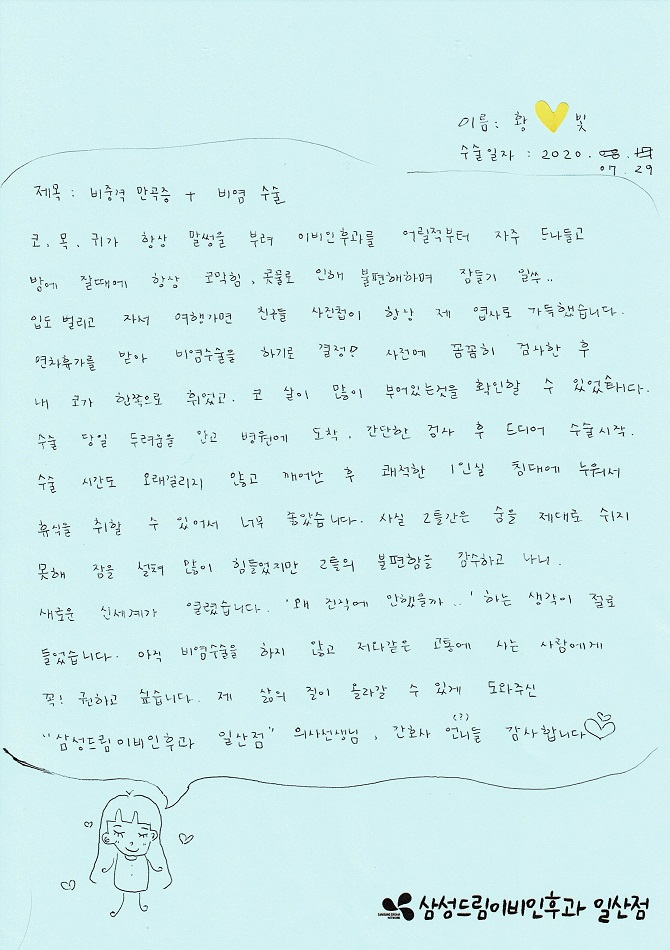 이름: 황 빛
수술일자 : 2020.
07. 29
제목 : 비중격 만곡증 + 비염 수술
코, 목, 귀가 항상 말썽을 부려 이비인후과를 어릴적부터 자주 드나들고
밤에 잘때에 항상 코막힘, 콧물로 인해 불편해하며 잠들기 일쑤..
입도 벌리고 자서 여행가면 친구들 사진첩이 항상 제 엽사로 가득했습니다.
연차휴가를 받아 비염수술을 하기로 결정? 사전에 꼼꼼히 검사한 후
내 코가 한쪽으로 휘었고. 코 살이 많이 부어있는것을 확인할 수 있었습니다.
수술 당일 두려움을 안고 병원에 도착, 간단한 검사 후 드디어 수술시작.
수술 시간도 오래걸리지 않고 깨어난 후 쾌적한 1인실 침대에 누워서
휴식을 취할 수 있어서 너무 좋았습니다. 사실 2틀간은 숨을 제대로 쉬지
못해 잠을 설쳐 많이 힘들었지만 2틀의 불편함을 감수하고 나니.
새로운 신세계가 열렸습니다. '왜 진작에 안했을까..' 하는 생각이 절로
들었습니다. 아직 비염수술을 하지 않고 저와같은 고통에 사는 사람에게
꼭! 권하고 싶습니다. 제 삶의 질이 올라갈 수 있게 도와주신
"삼성드림이비인후과 일산점" 의사선생님, 간호사 언니들(?) 감사합니다
SAMSUNG DREAM NETWORK
삼성드림이비인후과 일산점